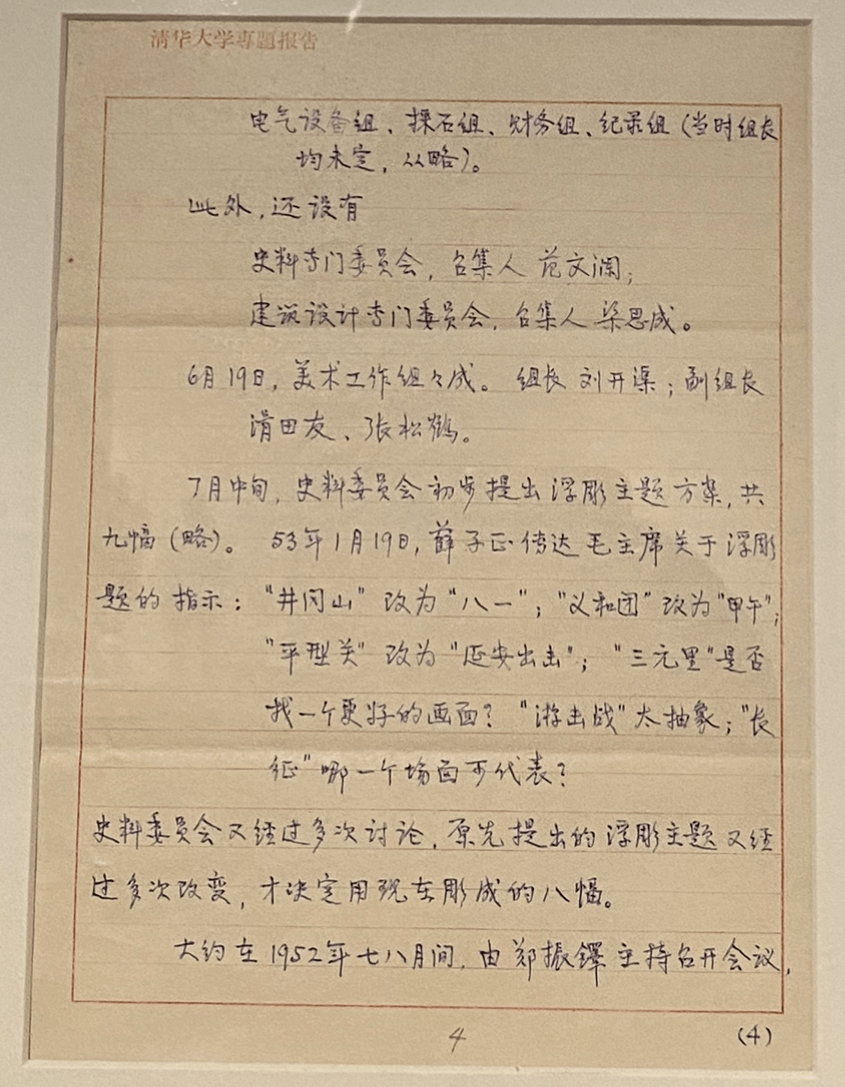 清华大学专题报告
电气设备组、採石组、财务组、纪录组(当时组长
均未定,从略)。
此外,还设有
史料专门委员会,召集人 范文澜;
建筑设计专门委员会,召集人 梁思成。
6月19日,美术工作组々成。 组长 刘开渠;副组长
滑田友、张松鹤。
7月中旬,史料委员会初步提出浮彫主题方案,共
九幅(略)。 53年1月19日,薛子正传达毛主席关于浮彫
题的指示:“井冈山”改为“八一”;“义和团”改为“甲午”;
“平型关”改为“延安出击”;“三元里”是否
找一个更好的画面?“游击战”太抽象;“长
征”哪一个场面可代表?
史料委员会又经过多次讨论,原先提出的浮彫主题又经
过多次改变,才决定用现在彫成的八幅。
大约在1952年七八月间,由郑振铎主持召开会议,
4
(4)